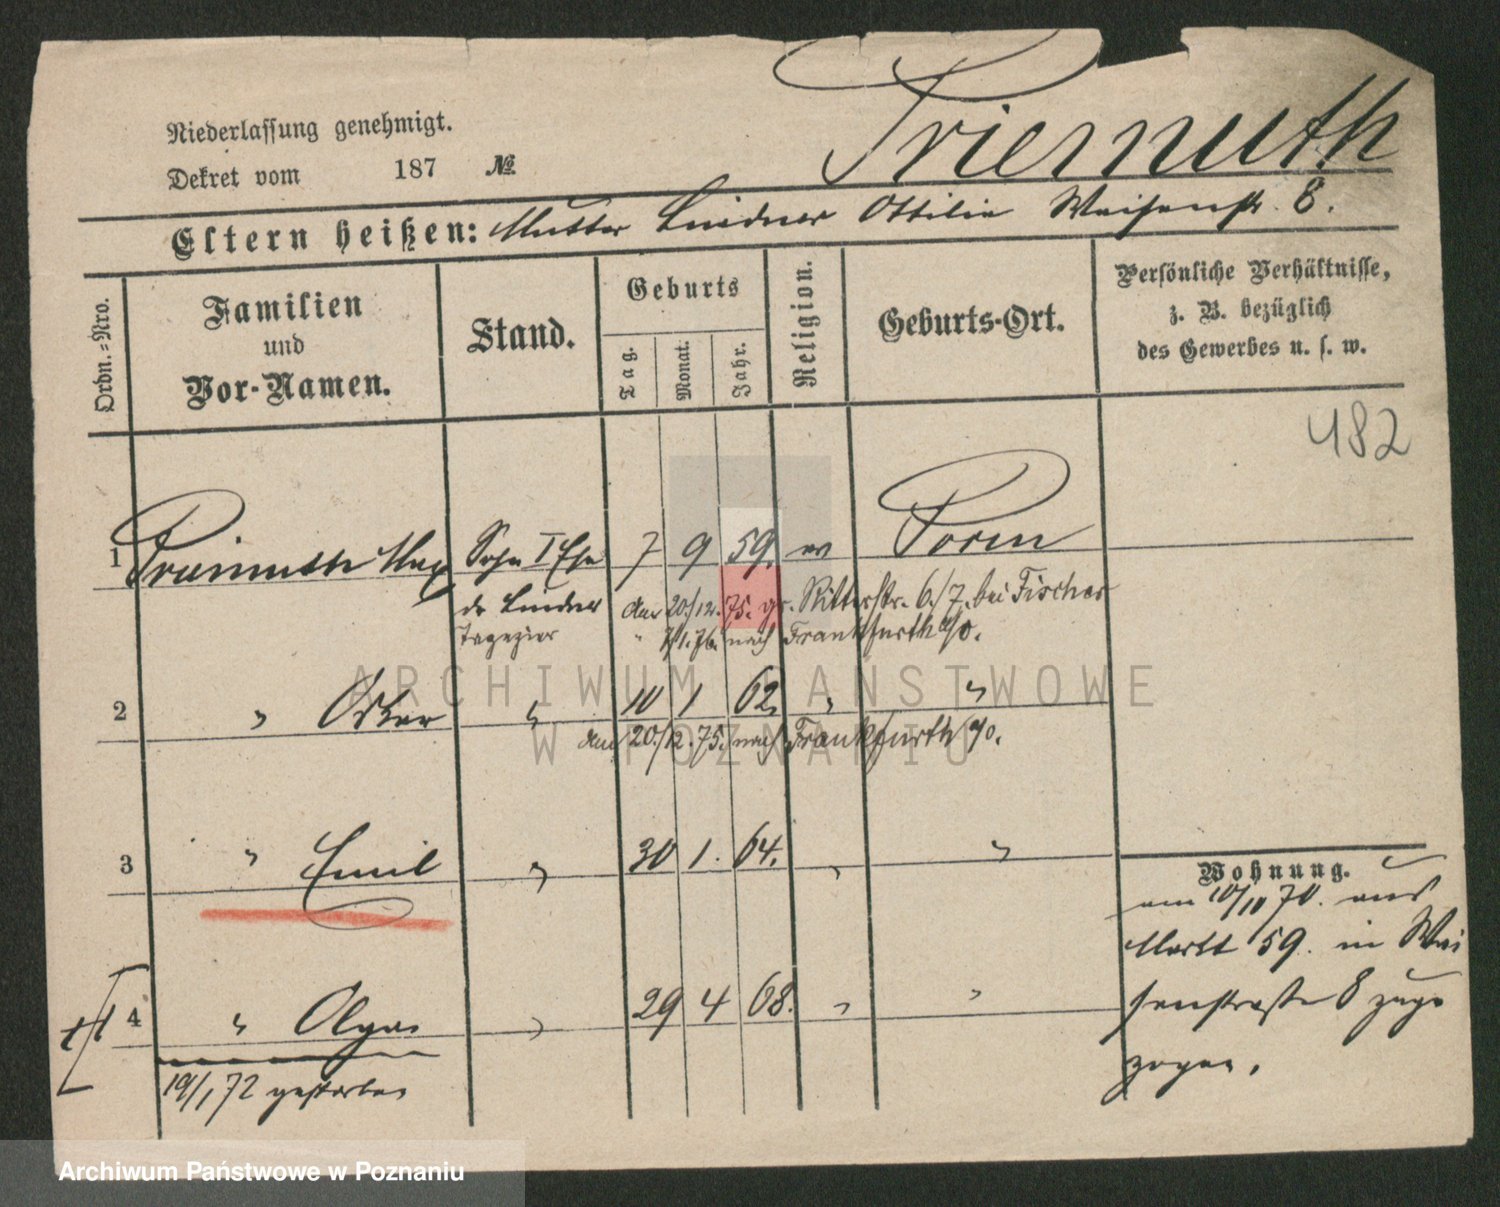 Priemuth
Niederlassung genehmigt.
Dekret vom 187 №
Eltern heißen: Mutter Lindner Ottilie Waisenstr. 8.
Ordn.-Nro.
Familien
und
Vor-Namen.
Stand.
Geburts
Tag. Monat. Jahr.
Religion.
Geburts-Ort.
Persönliche Verhältnisse,
z. B. bezüglich
des Gewerbes u. s. w.
482
1 Priemuth Max Sohn I Ehe 7 9 59. ev Posen
d Lindner den 20./12. 75. gr. Ritterstr. 6./7. bei Fischer
Tapezier " 7/1. 76. nach Frankfurth a/o.
2 " Oskar " 10 1 62. " "
den 20./12. 75. nach Frankfurth a/o.
3 " Emil " 30 1. 64. " "
4 " Olga " 29 4 68. " "
19/1 72 gestorben
Wohnung.
am 10/10 70. aus
Markt 59. in Wai
senstraße 8 zuge
zogen.
ARCHIWUM PAŃSTWOWE
W POZNANIU
Archiwum Państwowe w Poznaniu